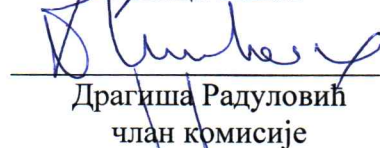 Драгиша Радуловић
члан комисије